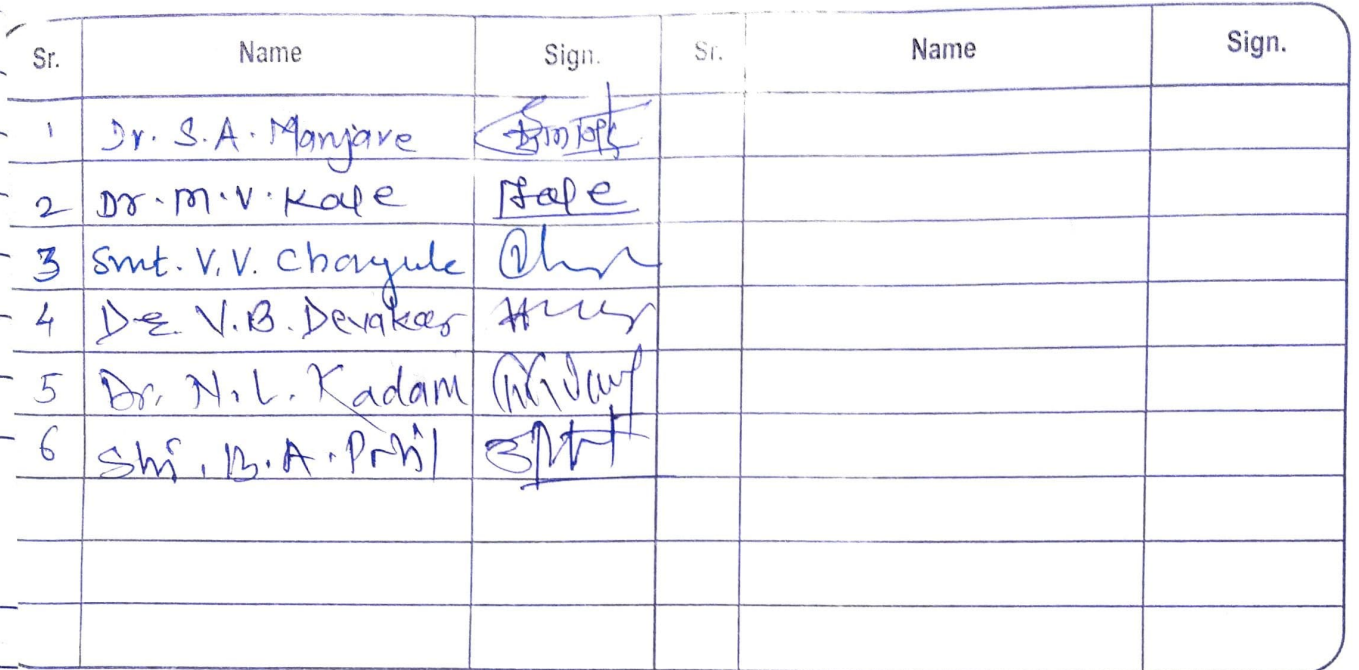 Sr. Name Sign. Sr. Name Sign.
1 Dr. S.A. Manjare
2 Dr. M.V. Kale Kale
3 Smt. V.V. Chaugule
4 Dr. V.B. Devakar
5 Dr. N.L. Kadam
6 Shri. B.A. Patil